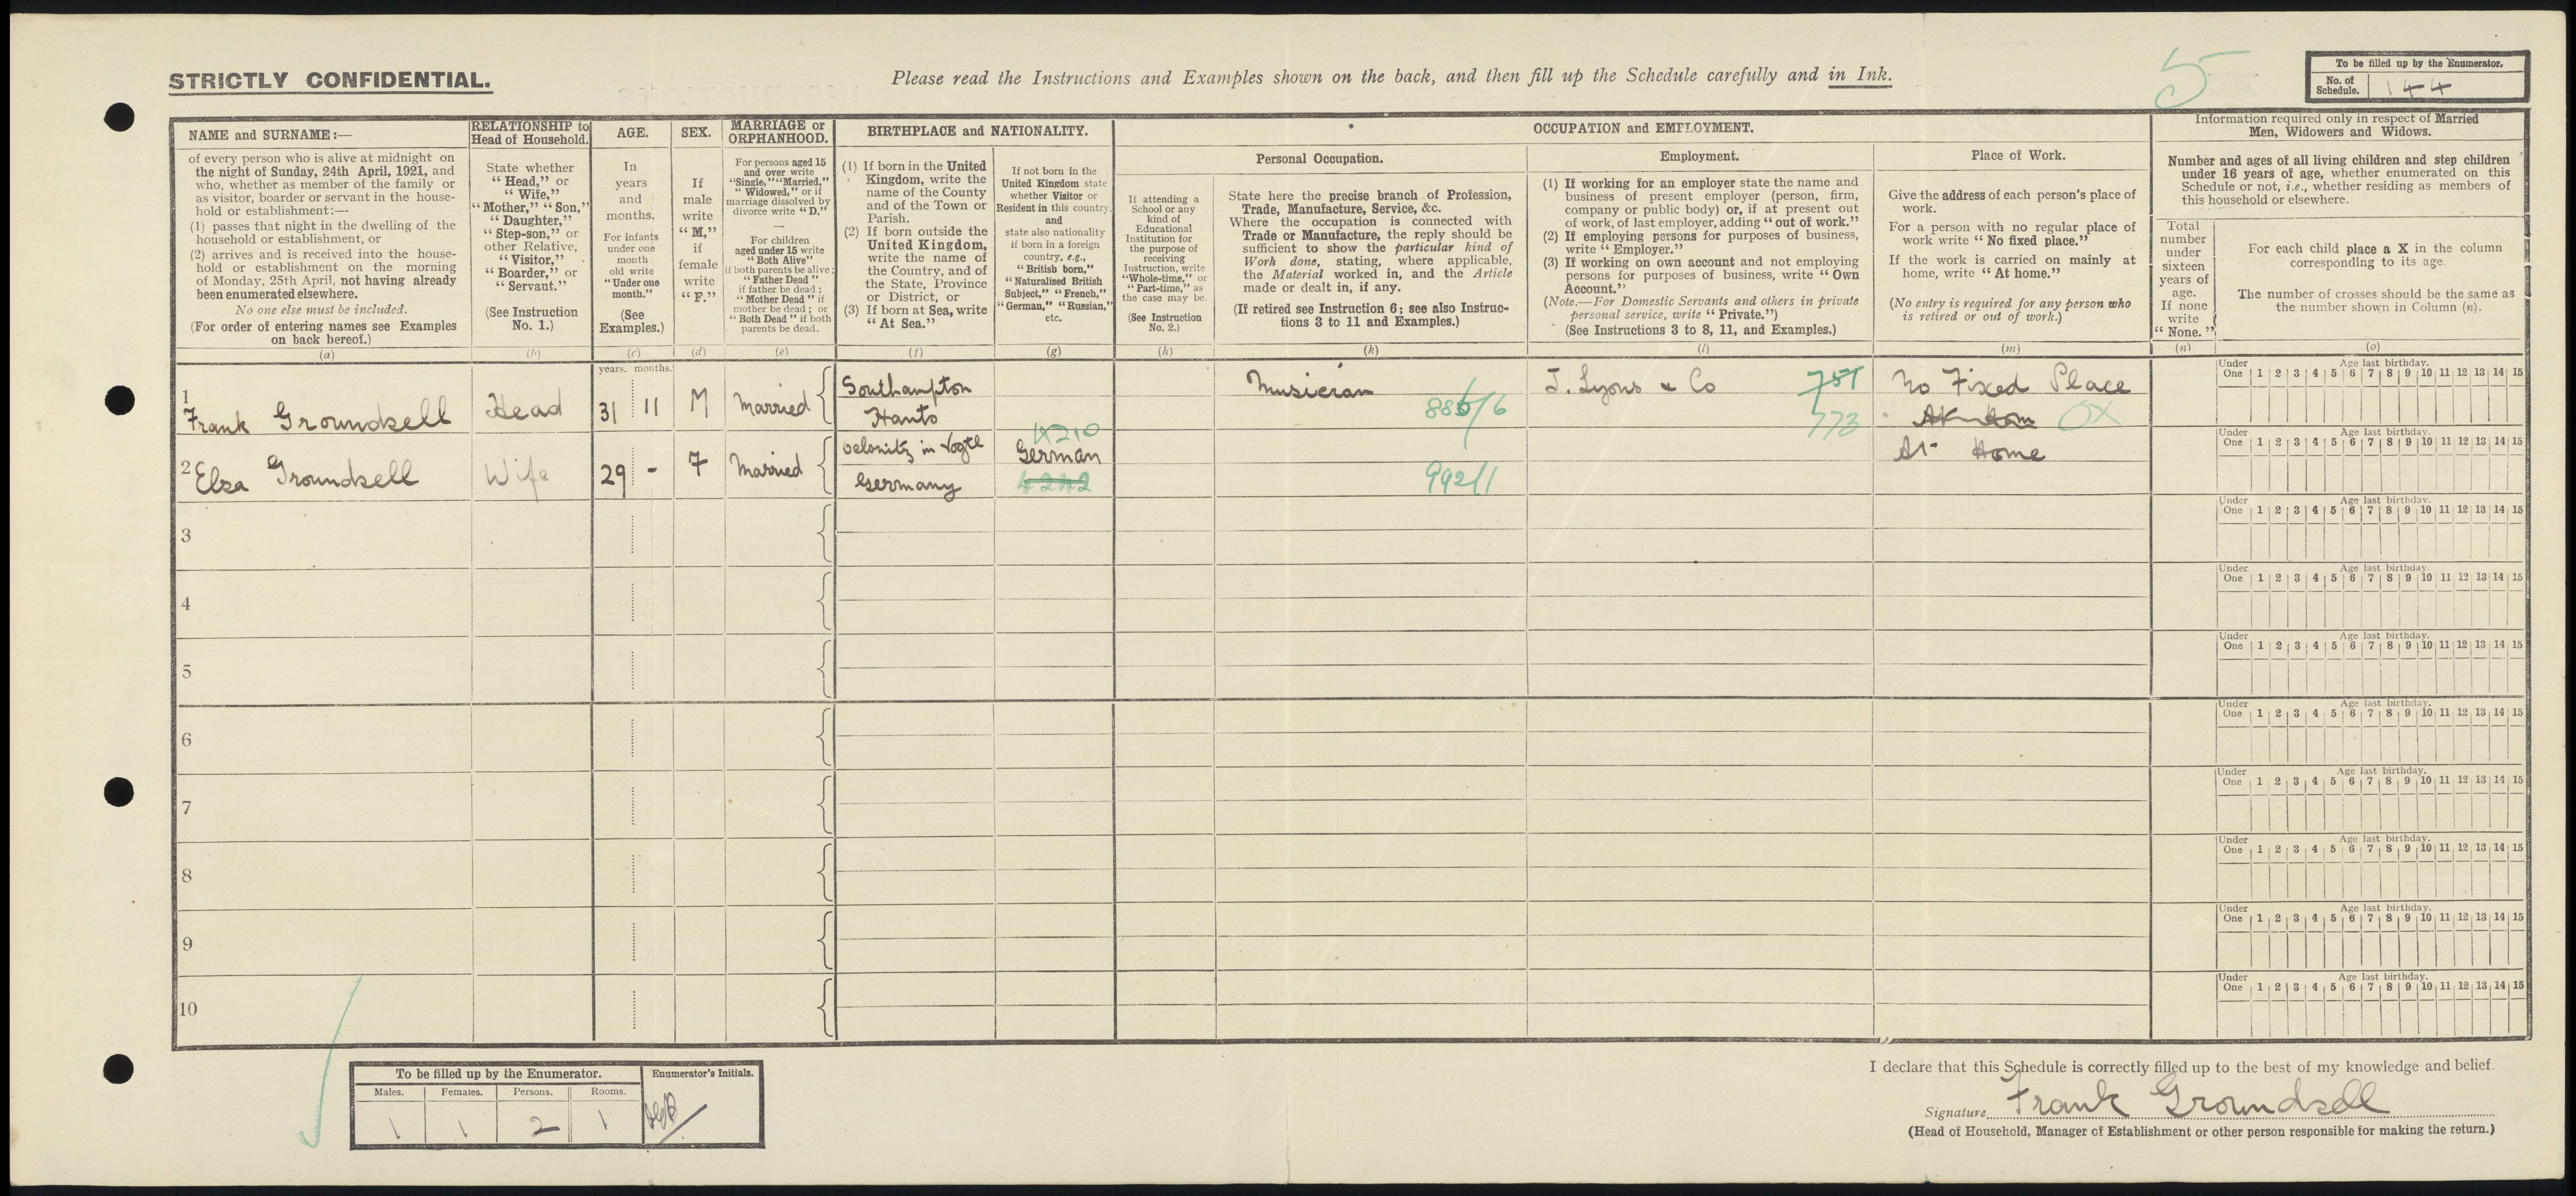 STRICTLY CONFIDENTIAL.
Please read the Instructions and Examples shown on the back, and then fill up the Schedule carefully and in Ink.
5
To be filled up by the Enumerator.
No. of Schedule. 144
NAME and SURNAME:—
of every person who is alive at midnight on
the night of Sunday, 24th April, 1921, and
who, whether as member of the family or
as visitor, boarder or servant in the house-
hold or establishment:—
(1) passes that night in the dwelling of the
household or establishment, or
(2) arrives and is received into the house-
hold or establishment on the morning
of Monday, 25th April, not having already
been enumerated elsewhere.
No one else must be included.
(For order of entering names see Examples
on back hereof.)
(a)
RELATIONSHIP to
Head of Household.
State whether
"Head," or
"Wife,"
"Mother," "Son,"
"Daughter,"
"Step-son," or
other Relative,
"Visitor,"
"Boarder," or
"Servant."
(See Instruction
No. 1.)
(b)
AGE.
In
years
and
months.
For infants
under one
month
old write
"Under one
month."
(See
Examples.)
(c)
SEX.
If
male
write
"M,"
if
female
write
"F."
(d)
MARRIAGE or
ORPHANHOOD.
For persons aged 15
and over write
"Single," "Married,"
"Widowed," or if
marriage dissolved by
divorce write "D."
—
For children
aged under 15 write
"Both Alive"
if both parents be alive;
"Father Dead"
if father be dead;
"Mother Dead" if
mother be dead; or
"Both Dead" if both
parents be dead.
(e)
BIRTHPLACE and NATIONALITY.
(1) If born in the United
Kingdom, write the
name of the County
and of the Town or
Parish.
(2) If born outside the
United Kingdom,
write the name of
the Country, and of
the State, Province
or District, or
(3) If born at Sea, write
"At Sea."
(f)
If not born in the
United Kingdom state
whether Visitor or
Resident in this country,
and
state also nationality
if born in a foreign
country, e.g.,
"British born,"
"Naturalised British
Subject," "French,"
"German," "Russian,"
etc.
(g)
OCCUPATION and EMPLOYMENT.
If attending a
School or any
kind of
Educational
Institution for
the purpose of
receiving
Instruction, write
"Whole-time," or
"Part-time," as
the case may be.
(See Instruction
No. 2.)
(h)
Personal Occupation.
State here the precise branch of Profession,
Trade, Manufacture, Service, &c.
Where the occupation is connected with
Trade or Manufacture, the reply should be
sufficient to show the particular kind of
Work done, stating, where applicable,
the Material worked in, and the Article
made or dealt in, if any.
(If retired see Instruction 6; see also Instruc-
tions 3 to 11 and Examples.)
(k)
Employment.
(1) If working for an employer state the name and
business of present employer (person, firm,
company or public body) or, if at present out
of work, of last employer, adding "out of work."
(2) If employing persons for purposes of business,
write "Employer."
(3) If working on own account and not employing
persons for purposes of business, write "Own
Account."
(Note.—For Domestic Servants and others in private
personal service, write "Private.")
(See Instructions 3 to 8, 11, and Examples.)
(l)
Place of Work.
Give the address of each person's place of
work.
For a person with no regular place of
work write "No fixed place."
If the work is carried on mainly at
home, write "At home."
(No entry is required for any person who
is retired or out of work.)
(m)
Information required only in respect of Married
Men, Widowers and Widows.
Number and ages of all living children and step children
under 16 years of age, whether enumerated on this
Schedule or not, i.e., whether residing as members of
this household or elsewhere.
Total
number
under
sixteen
years of
age.
If none
write
"None."
(n)
For each child place a X in the column
corresponding to its age.
The number of crosses should be the same as
the number shown in Column (n).
(o)
years. months.
1 Frank Groundsell Head 31 11 M Married Southampton Hants Musician 886/6 J. Lyons & Co 751 773 No Fixed Place OX
Under One Age last birthday. 1 2 3 4 5 6 7 8 9 10 11 12 13 14 15
2 Elsa Groundsell Wife 29 - F Married Oelsnitz in Vogtl Germany X210 German 4242 992/1 At Home
Under One Age last birthday. 1 2 3 4 5 6 7 8 9 10 11 12 13 14 15
3
Under One Age last birthday. 1 2 3 4 5 6 7 8 9 10 11 12 13 14 15
4
Under One Age last birthday. 1 2 3 4 5 6 7 8 9 10 11 12 13 14 15
5
Under One Age last birthday. 1 2 3 4 5 6 7 8 9 10 11 12 13 14 15
6
Under One Age last birthday. 1 2 3 4 5 6 7 8 9 10 11 12 13 14 15
7
Under One Age last birthday. 1 2 3 4 5 6 7 8 9 10 11 12 13 14 15
8
Under One Age last birthday. 1 2 3 4 5 6 7 8 9 10 11 12 13 14 15
9
Under One Age last birthday. 1 2 3 4 5 6 7 8 9 10 11 12 13 14 15
10
Under One Age last birthday. 1 2 3 4 5 6 7 8 9 10 11 12 13 14 15
To be filled up by the Enumerator.
Enumerator's Initials.
Males. Females. Persons. Rooms.
1 1 2 1
I declare that this Schedule is correctly filled up to the best of my knowledge and belief.
Signature Frank Groundsell
(Head of Household, Manager of Establishment or other person responsible for making the return.)